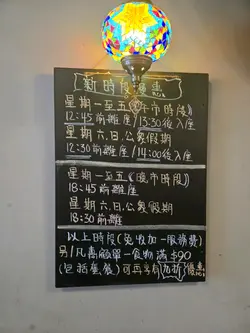 新時段優惠
星期一至五(午市時段)
12:45前離座/13:30後入座
星期六.日.公眾假期
12:30前離座/14:00後入座
星期一至五(晚市時段)
18:45前離座
星期六.日.公眾假期
18:30前離
以上時段(免收加一服務費)
另/凡惠顧單一食物滿$90
(包括蛋餐)可再享有(加折)優惠